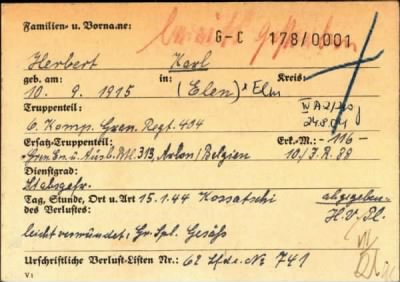 Familien- u. Vorname: G-C 178/0001
Herbert Karl
geb. am: in: Kreis:
10. 9. 1915 (Elen) Elm
Truppenteil:
6. Komp. Gren. Regt. 404
Ersatz-Truppenteil: Erk.-M.: -116-
Gren. Ers. u. Ausb. Btl. 313, Arlon/Belgien 10./J.R. 88
Dienstgrad:
Stabsgefr.
Tag, Stunde, Ort u. Art 15.1.44 Kossatschi abgegeben
des Verlustes: H.V. Bl.
leicht verwundet: Gr. Spl. Gesäss
Urschriftliche Verlust-Listen Nr.: 62 Lfde. No 741
V1